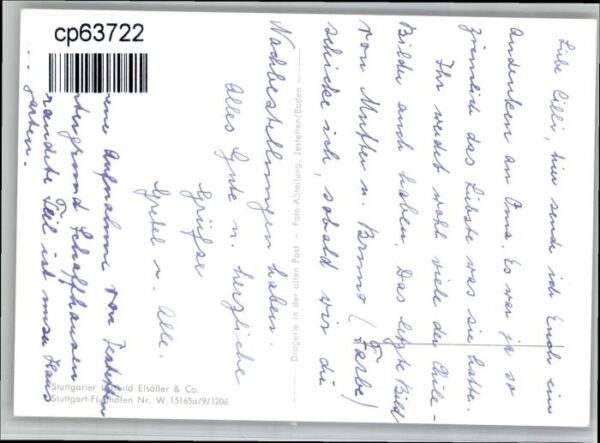 cp63722
Liebe Cilli, hier sende ich Euch ein
Andenken an Oma. Es war ja so
ziemlich das Liebste was sie hatte.
Ihr werdet wohl viele der
Bilder auch haben. Das letzte Bild
von Mutter u. Bruno (Farbe)
schicke ich, sobald wir die
Nachbestellungen haben.
Alles Gute u. herzliche
Grüße
u. Alle.
Aufnahme von Jestetten
Schaffhausen
Teil ist unser Haus
Garten.
Drogerie in der alten Post – Foto-Abteilung, Jestetten/Baden
Stuttgarter Luftbild Elsäßer & Co.
Stuttgart-Flughafen Nr. W 15165a/9/1206